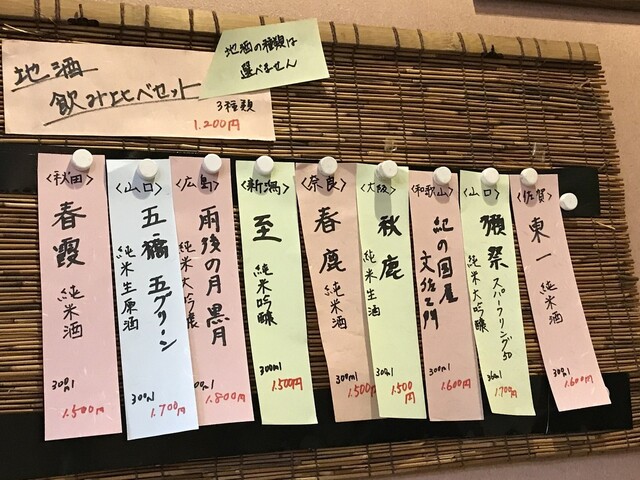 地酒
飲み比べセット
3種類
1.200円
地酒の種類は
選べません
〈秋田〉
春霞
純米酒
300ml
1.500円
〈山口〉
五橋 五グリーン
純米生原酒
300ml
1.700円
〈広島〉
雨後の月 黒月
純米大吟醸
300ml
1.800円
〈新潟〉
至
純米吟醸
300ml
1.500円
〈奈良〉
春鹿
純米酒
300ml
1.500
〈大阪〉
秋鹿
純米生酒
300ml
1.500円
〈和歌山〉
紀の国屋
文左ヱ門
300ml
1.600円
〈山口〉
獺祭 スパークリング50
純米大吟醸
360ml
1.700円
〈佐賀〉
東一
純米酒
300ml
1.600円